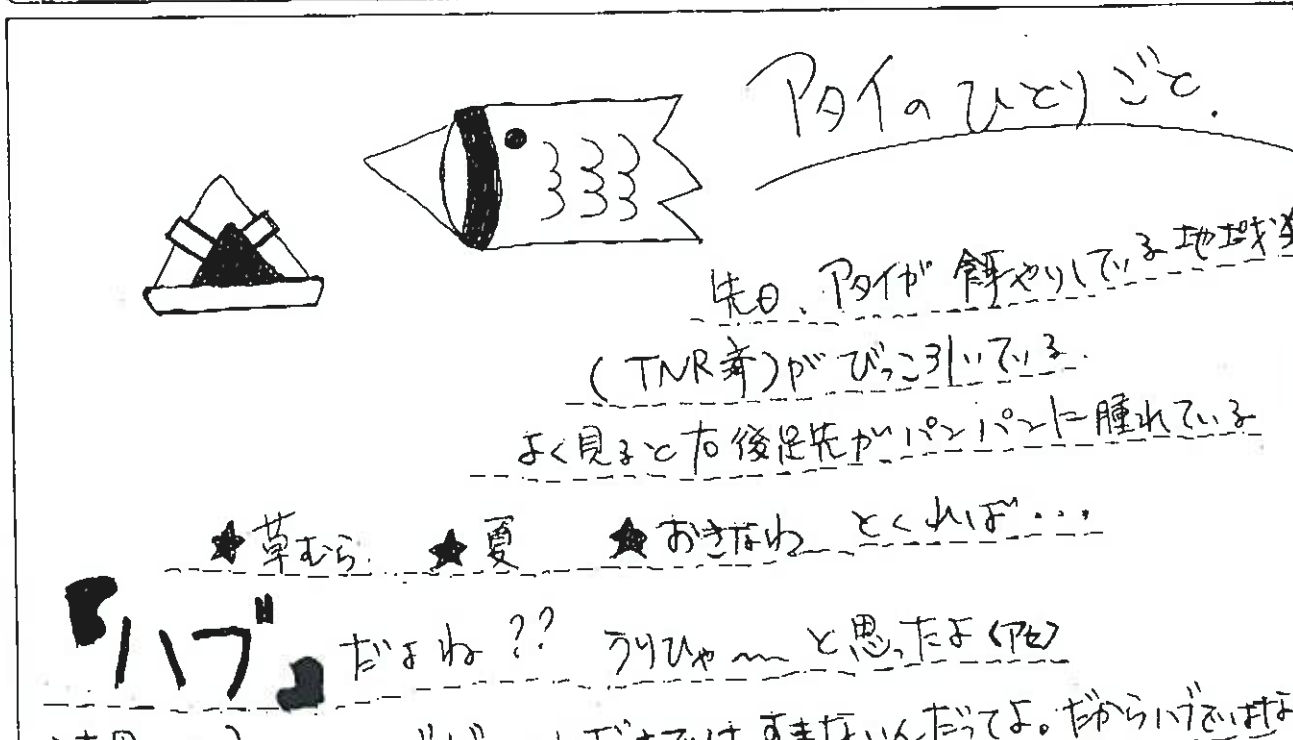 アタイのひとりごと.
先日、アタイが餌やりしている地域
(TNR済)がびっこ引いている.
よく見ると右後足先がパンパンに腫れている
★草むら. ★夏 ★おきなわ とくれば・・・
『ハブ』だよね?? うりひゃ〜〜と思ったよ(アセ)
すまないんだってよ。だからハブではな